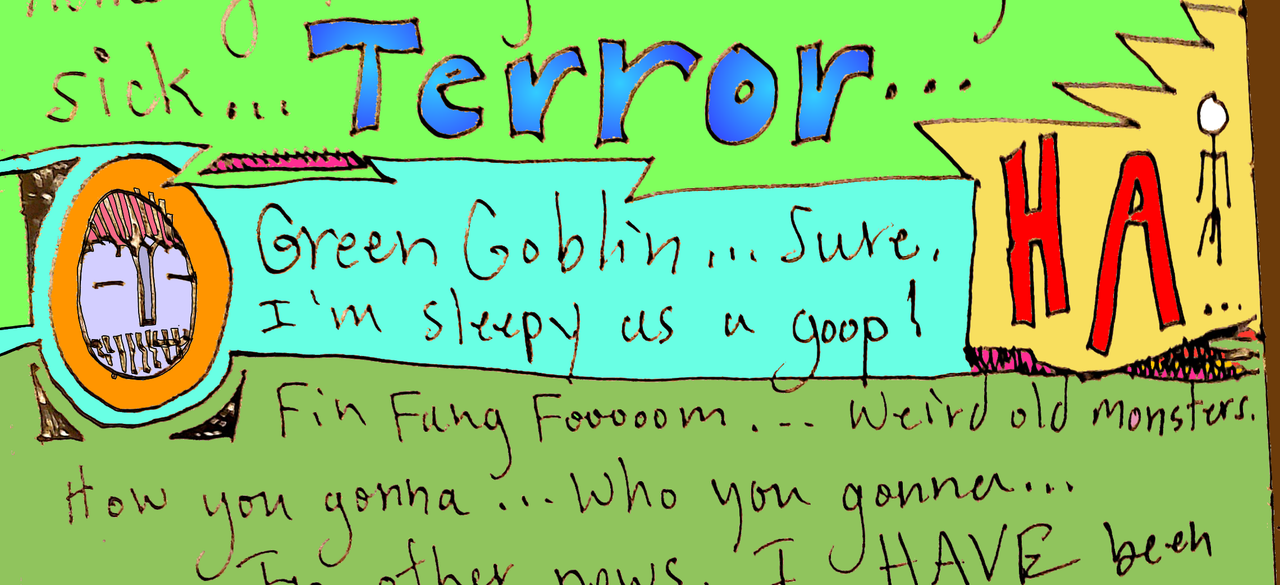 sick... Terror...
HA...
Green Goblin... Sure.
I'm sleepy as a goop!
Fin Fang Fooooom.... Weird old monsters.
How you gonna... Who you gonna...
In other news, I HAVE been